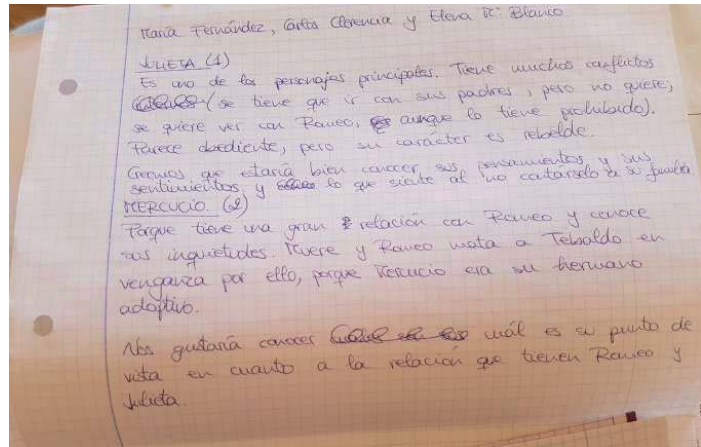 María Fernández, Carlos Clerencia y Elena Mª Blanco
JULIETA (1)
Es uno de los personajes principales. Tiene muchos conflictos
(se tiene que ir con sus padres, pero no quiere;
se quiere ver con Romeo, aunque lo tiene prohibido).
Parece obediente, pero su carácter es rebelde.
Creemos que estaría bien conocer sus pensamientos y sus
sentimientos y lo que siente al no contárselo a su familia
MERCUCIO (2)
Porque tiene una gran relación con Romeo y conoce
sus inquietudes. Muere y Romeo mata a Tebaldo en
venganza por ello, porque Mercucio era su hermano
adoptivo.
Nos gustaría conocer cuál es su punto de
vista en cuanto a la relación que tienen Romeo y
Julieta.